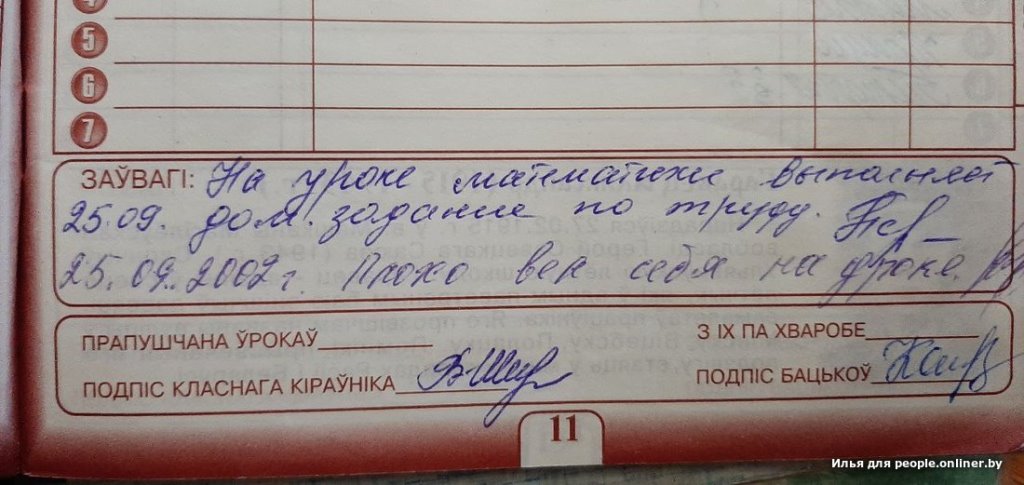 4
5
6
7
ЗАЎВАГІ: На уроке математики выполнял
25.09. дом. задание по труду.
25.09.2002 г. Плохо вёл себя на уроке.
ПРАПУШЧАНА ЎРОКАЎ
З ІХ ПА ХВАРОБЕ
ПОДПІС КЛАСНАГА КІРАЎНІКА
ПОДПІС БАЦЬКОЎ
11
Илья для people.onliner.by